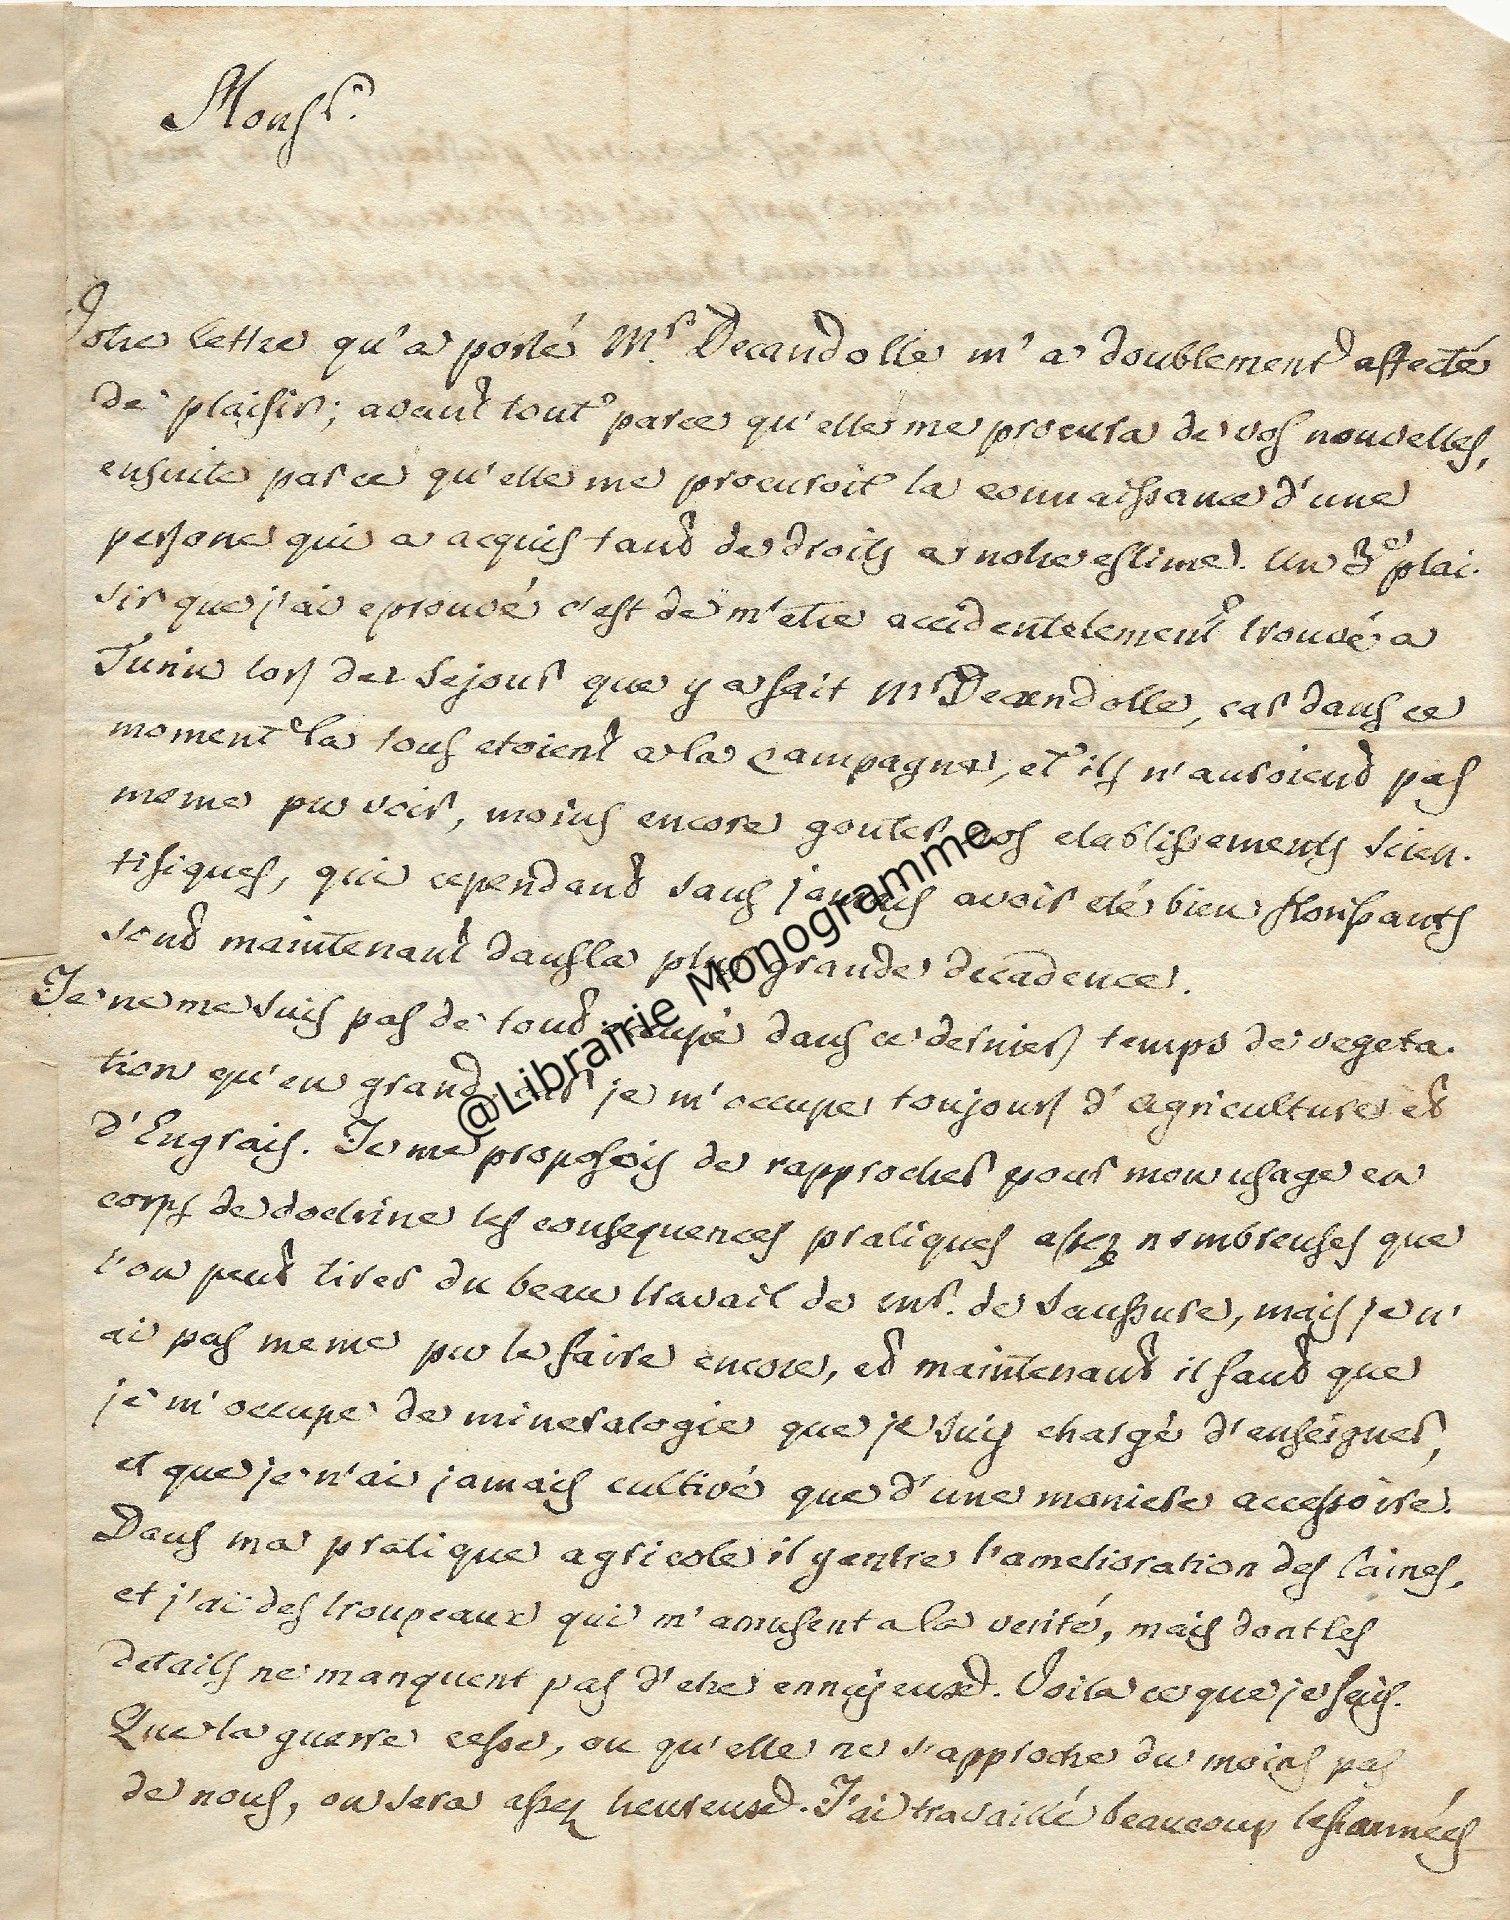 Monsr.
Votre lettre qu'a porté Mr. Decandolle m'a doublement affecté
de plaisir; avant tout parce qu'elle me procura de vos nouvelles,
ensuite parce qu'elle me procuroit la connaissance d'une
persone qui a acquis tant de droits a notre estime. Un 3e plai-
sir que j'ai eprouvé c'est de m'etre accidentelement trouvé a
Turin lors del sejour que y a fait Mr Decandolle, car dans ce
moment la tous etoient a la campagne, et ils n'auroient pas
meme pu voir, moins encore gouter nos etablissements scien-
tifiques, qui cependant sans jamais avoir eté bien florissants
sont maintenant dans la plus grande decadence.
Je ne me suis pas de tout occupé dans ce derniers temps de vegeta-
tion qu'en grand, car je m'occupe toujours d'agriculture et
d'Engrais. Je me proposois de rapprocher pour mon usage en
corps de doctrine les consequences pratiques assez nombreuses que
l'on peut tirer du beau travail de mr. de Saussure, mais je n'
ai pas meme pu le faire encore, et maintenant il faut que
je m'occupe de mineralogie que je suis chargé d'enseigner,
et que je n'ai jamais cultivé que d'une maniere accessoire.
Dans ma pratique agricole il y entre l'amelioration des laines,
et j'ai des troupeaux qui m'amusent a la verité, mais dont les
details ne manquent pas d'etre ennuyeux. Voila ce que je fais.
Que la guerre cesse, ou qu'elle ne s'approche du moins pas
de nous, on sera assez heureux. J'ai travaillé beaucoup les années
@Librairie Monogramme